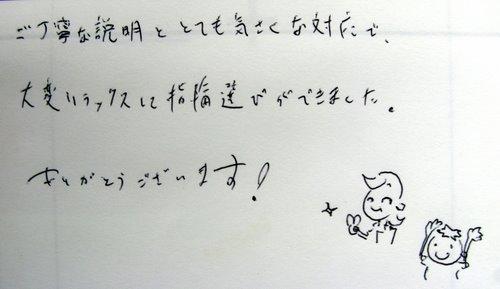 ご丁寧な説明ととても気さくな対応で、
大変リラックスして指輪選びができました。
ありがとうございます!